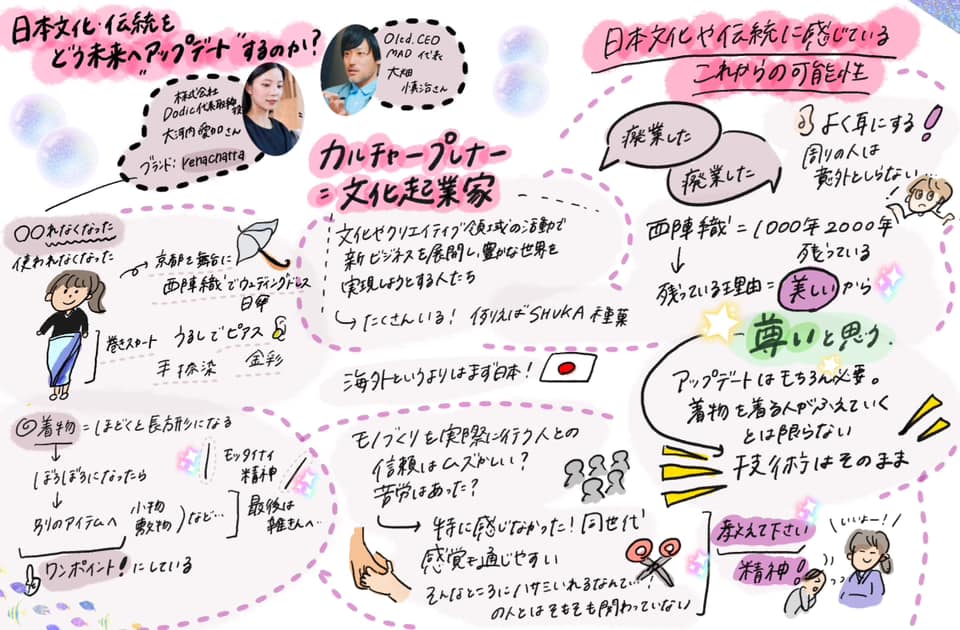 日本文化・伝統を
どう未来へ"アップデート"するのか?
株式会社
Dodici代表取締役
大河内愛加さん
ブランド: renacnatta
Oltd. CEO
MAD 代表
大畑
慎治さん
〇〇れなくなった
使われなくなった
京都を舞台に
西陣織でウェディングドレス
日傘
巻きスカート
うるしでピアス
手捺染
金彩
◎着物=ほどくと長方形になる
ぼろぼろになったら
別のアイテムへ
小物
敷物
など…
モッタイナイ
精神
最後は
雑きんへ…
ワンポイント!にしている
カルチャープレナー
=文化起業家
文化やクリエイティブ領域の活動で
新ビジネスを展開し、豊かな世界を
実現しようとする人たち
たくさんいる! 例えばSHUKA 種菓
海外というよりはまず日本!
モノづくりを実際に行う人との
信頼はムズかしい?
苦労はあった?
特に感じなかった! 同世代
感覚も通じやすい
そんなところにハサミいれるなんて…!
の人とはそもそも関わっていない
教えて下さい
精神!
いいよー!
日本文化や伝統に感じている
これからの可能性
廃業した
廃業した
よく耳にする!
周りの人は
意外としらない…
西陣織=1000年2000年
残っている
残っている理由=美しいから
尊いと思う.
アップデートはもちろん必要。
着物を着る人がふえていく
とは限らない
技術はそのまま